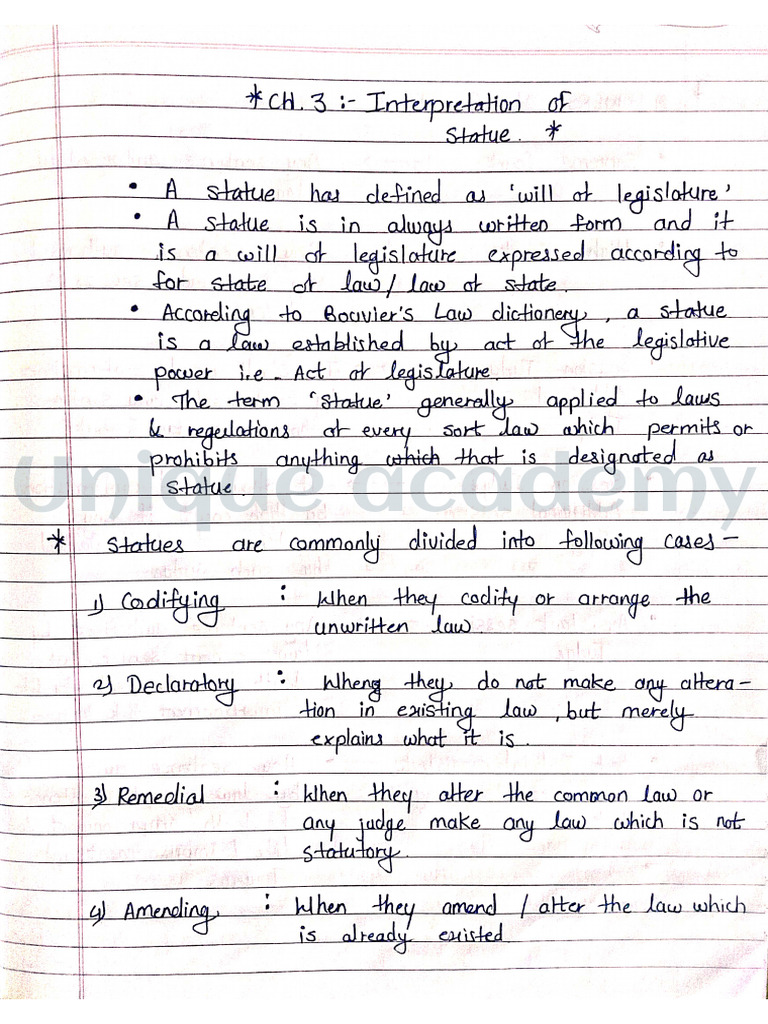 * CH. 3 :- Interpretation of
Statue. *
• A statue has defined as 'will of legislature'
• A statue is in always written form and it
is a will of legislature expressed according to
for state of law / law of state.
• According to Bouvier's Law dictionery, a statue
is a law established by act of the legislative
power i.e. Act of legislature.
• The term 'statue' generally applied to laws
& regulations of every sort law which permits or
prohibits anything which that is designated as
statue.
Unique academy
* Statues are commonly divided into following cases -
1) Codifying : When they codify or arrange the
unwritten law.
2) Declaratory : When they do not make any altera-
tion in existing law, but merely
explains what it is.
3) Remedial : When they alter the common law or
any judge make any law which is not
statutory.
4) Amending : When they amend / alter the law which
is already existed.